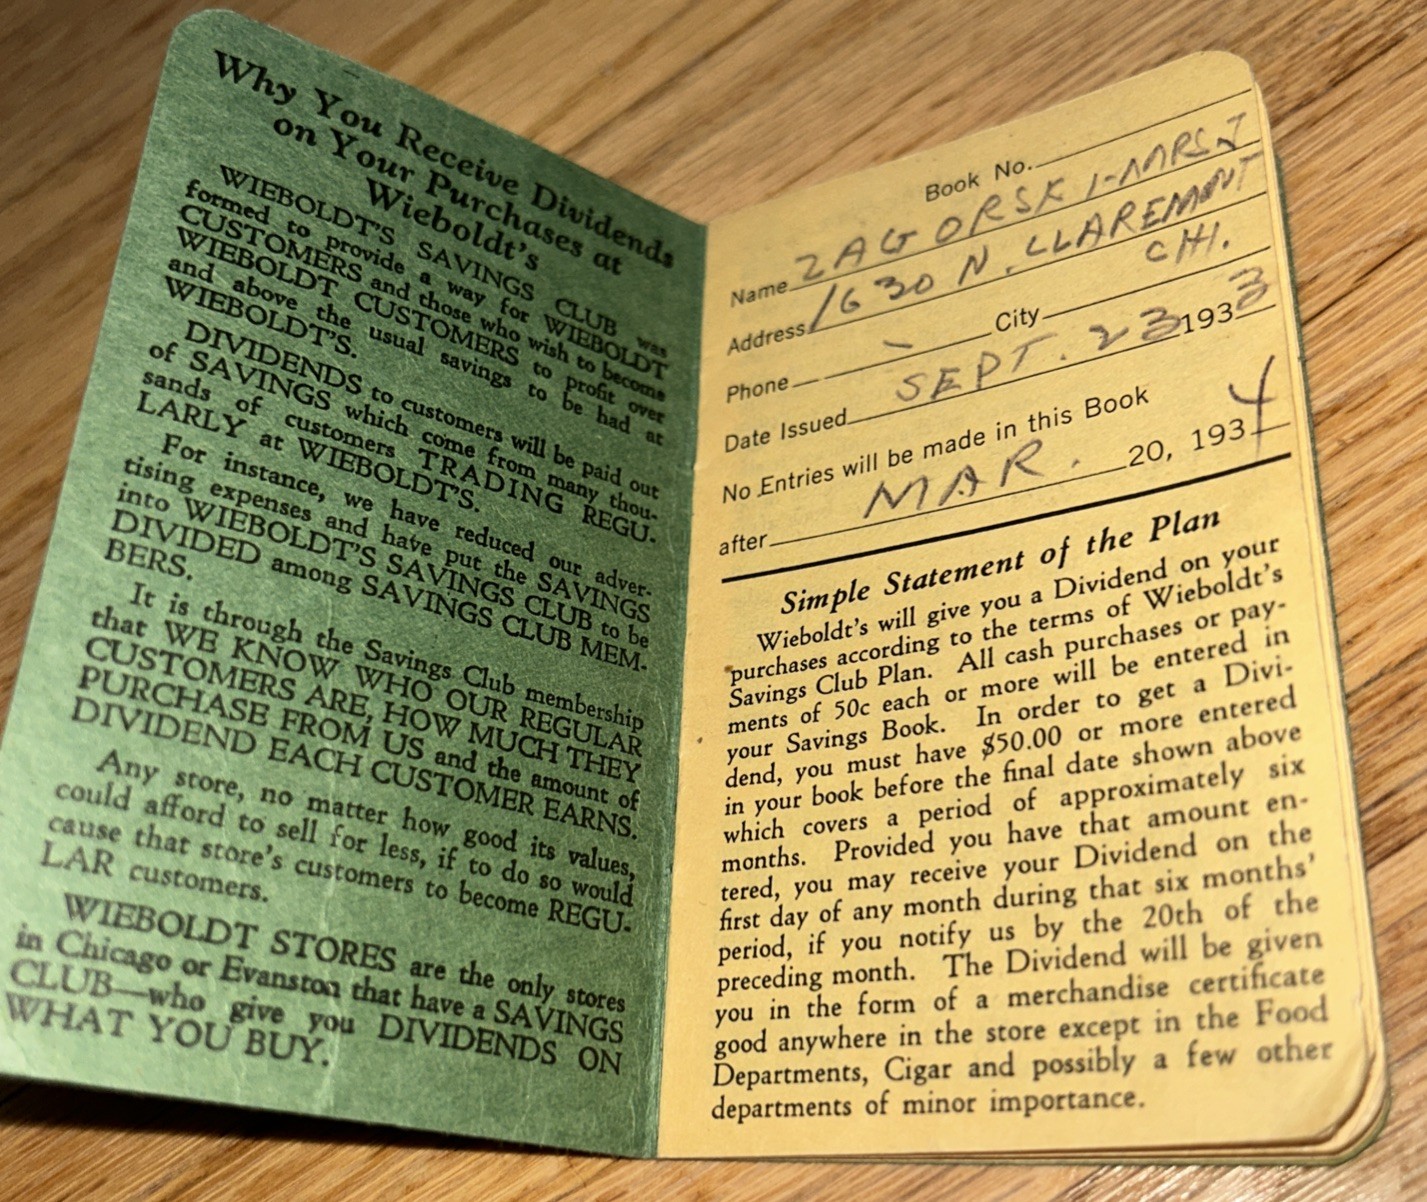 Why You Receive Dividends
on Your Purchases at
Wieboldt's
WIEBOLDT'S SAVINGS CLUB was
formed to provide a way for WIEBOLDT
CUSTOMERS and those who wish to become
WIEBOLDT CUSTOMERS to profit over
and above the usual savings to be had at
WIEBOLDT'S.
DIVIDENDS to customers will be paid out
of SAVINGS which come from many thou-
sands of customers TRADING REGU-
LARLY at WIEBOLDT'S.
For instance, we have reduced our adver-
tising expenses and have put the SAVINGS
into WIEBOLDT'S SAVINGS CLUB to be
DIVIDED among SAVINGS CLUB MEM-
BERS.
It is through the Savings Club membership
that WE KNOW WHO OUR REGULAR
CUSTOMERS ARE, HOW MUCH THEY
PURCHASE FROM US and the amount of
DIVIDEND EACH CUSTOMER EARNS.
Any store, no matter how good its values,
could afford to sell for less, if to do so would
cause that store's customers to become REGU-
LAR customers.
WIEBOLDT STORES are the only stores
in Chicago or Evanston that have a SAVINGS
CLUB—who give you DIVIDENDS ON
WHAT YOU BUY.
Book No.
Name ZAGORSKI-MRS J
Address 1630 N. CLAREMONT
Phone – City CHI.
Date Issued SEPT. 23 1933
No Entries will be made in this Book
after MAR. 20, 1934
Simple Statement of the Plan
Wieboldt's will give you a Dividend on your
purchases according to the terms of Wieboldt's
Savings Club Plan. All cash purchases or pay-
ments of 50c each or more will be entered in
your Savings Book. In order to get a Divi-
dend, you must have $50.00 or more entered
in your book before the final date shown above
which covers a period of approximately six
months. Provided you have that amount en-
tered, you may receive your Dividend on the
first day of any month during that six months'
period, if you notify us by the 20th of the
preceding month. The Dividend will be given
you in the form of a merchandise certificate
good anywhere in the store except in the Food
Departments, Cigar and possibly a few other
departments of minor importance.